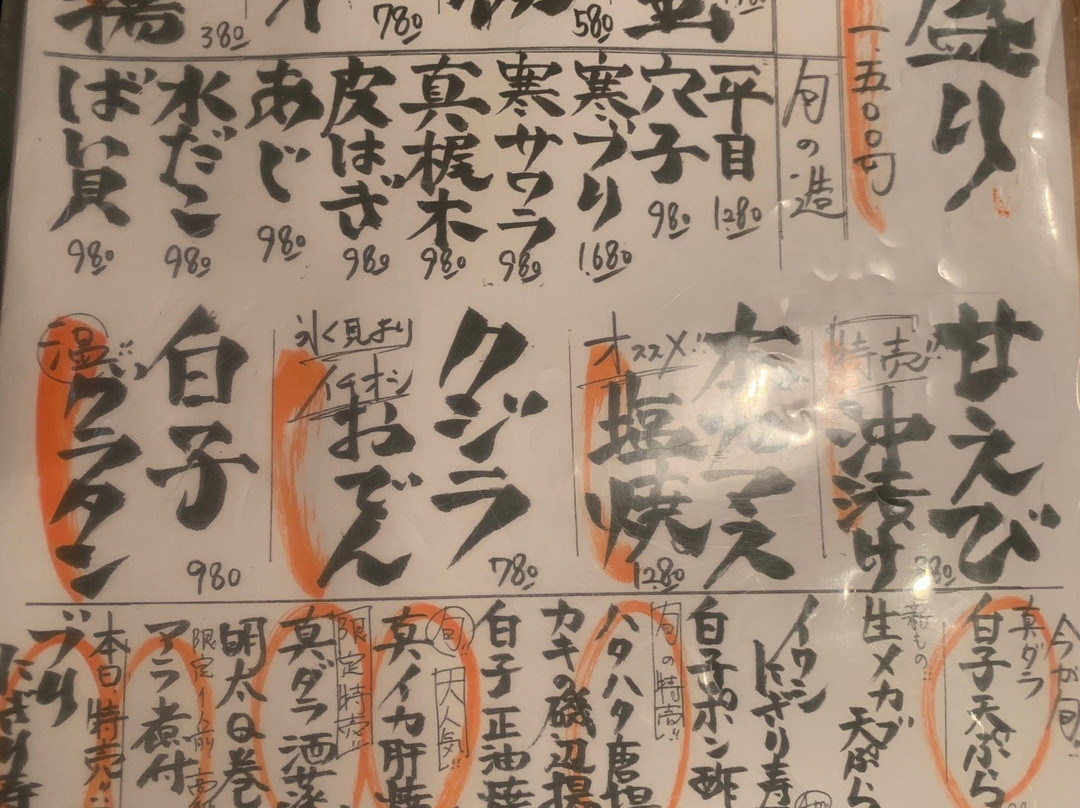 盛り
一、五〇〇円
380
780
580
旬の造
平目
1280
穴子
980
寒ブリ
1680
寒サワラ
980
真梶木
980
皮はぎ
980
あじ
980
水だこ
980
ばい貝
980
甘えび
特売!!
沖漬け
980
オススメ!!
塩焼
1280
クジラ
氷見より
イチオシ
おでん
780
白子
980
温
グラタン
今が旬!!
真ダラ
白子天ぷら
生メカブ
天ぷら
イワシ
にぎり寿
白子ポン酢
旬の特売!!
ハタハタ唐揚
カキの磯辺揚
白子正油焼
旬!!
大人気!!
真イカ肝焼
限定特売!!
真ダラ酒蒸
明太Q巻
限定1人前
アラ煮付
本日、特売り!!
ブリ
にぎり寿